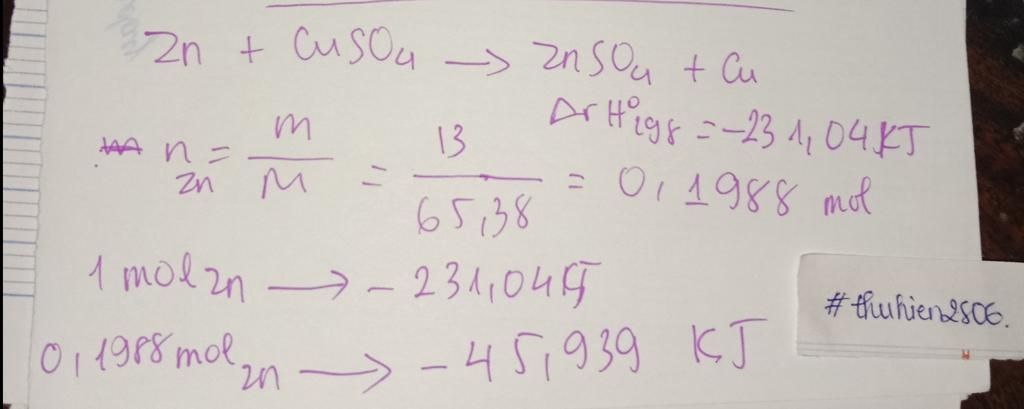 Zn + CuSO4 → ZnSO4 + Cu
ΔrH°298 = -231,04 KJ
n Zn = m / M = 13 / 65,38 = 0,1988 mol
1 mol Zn → - 231,04 KJ
#thuhien2806.
0,1988 mol Zn → - 45,939 KJ